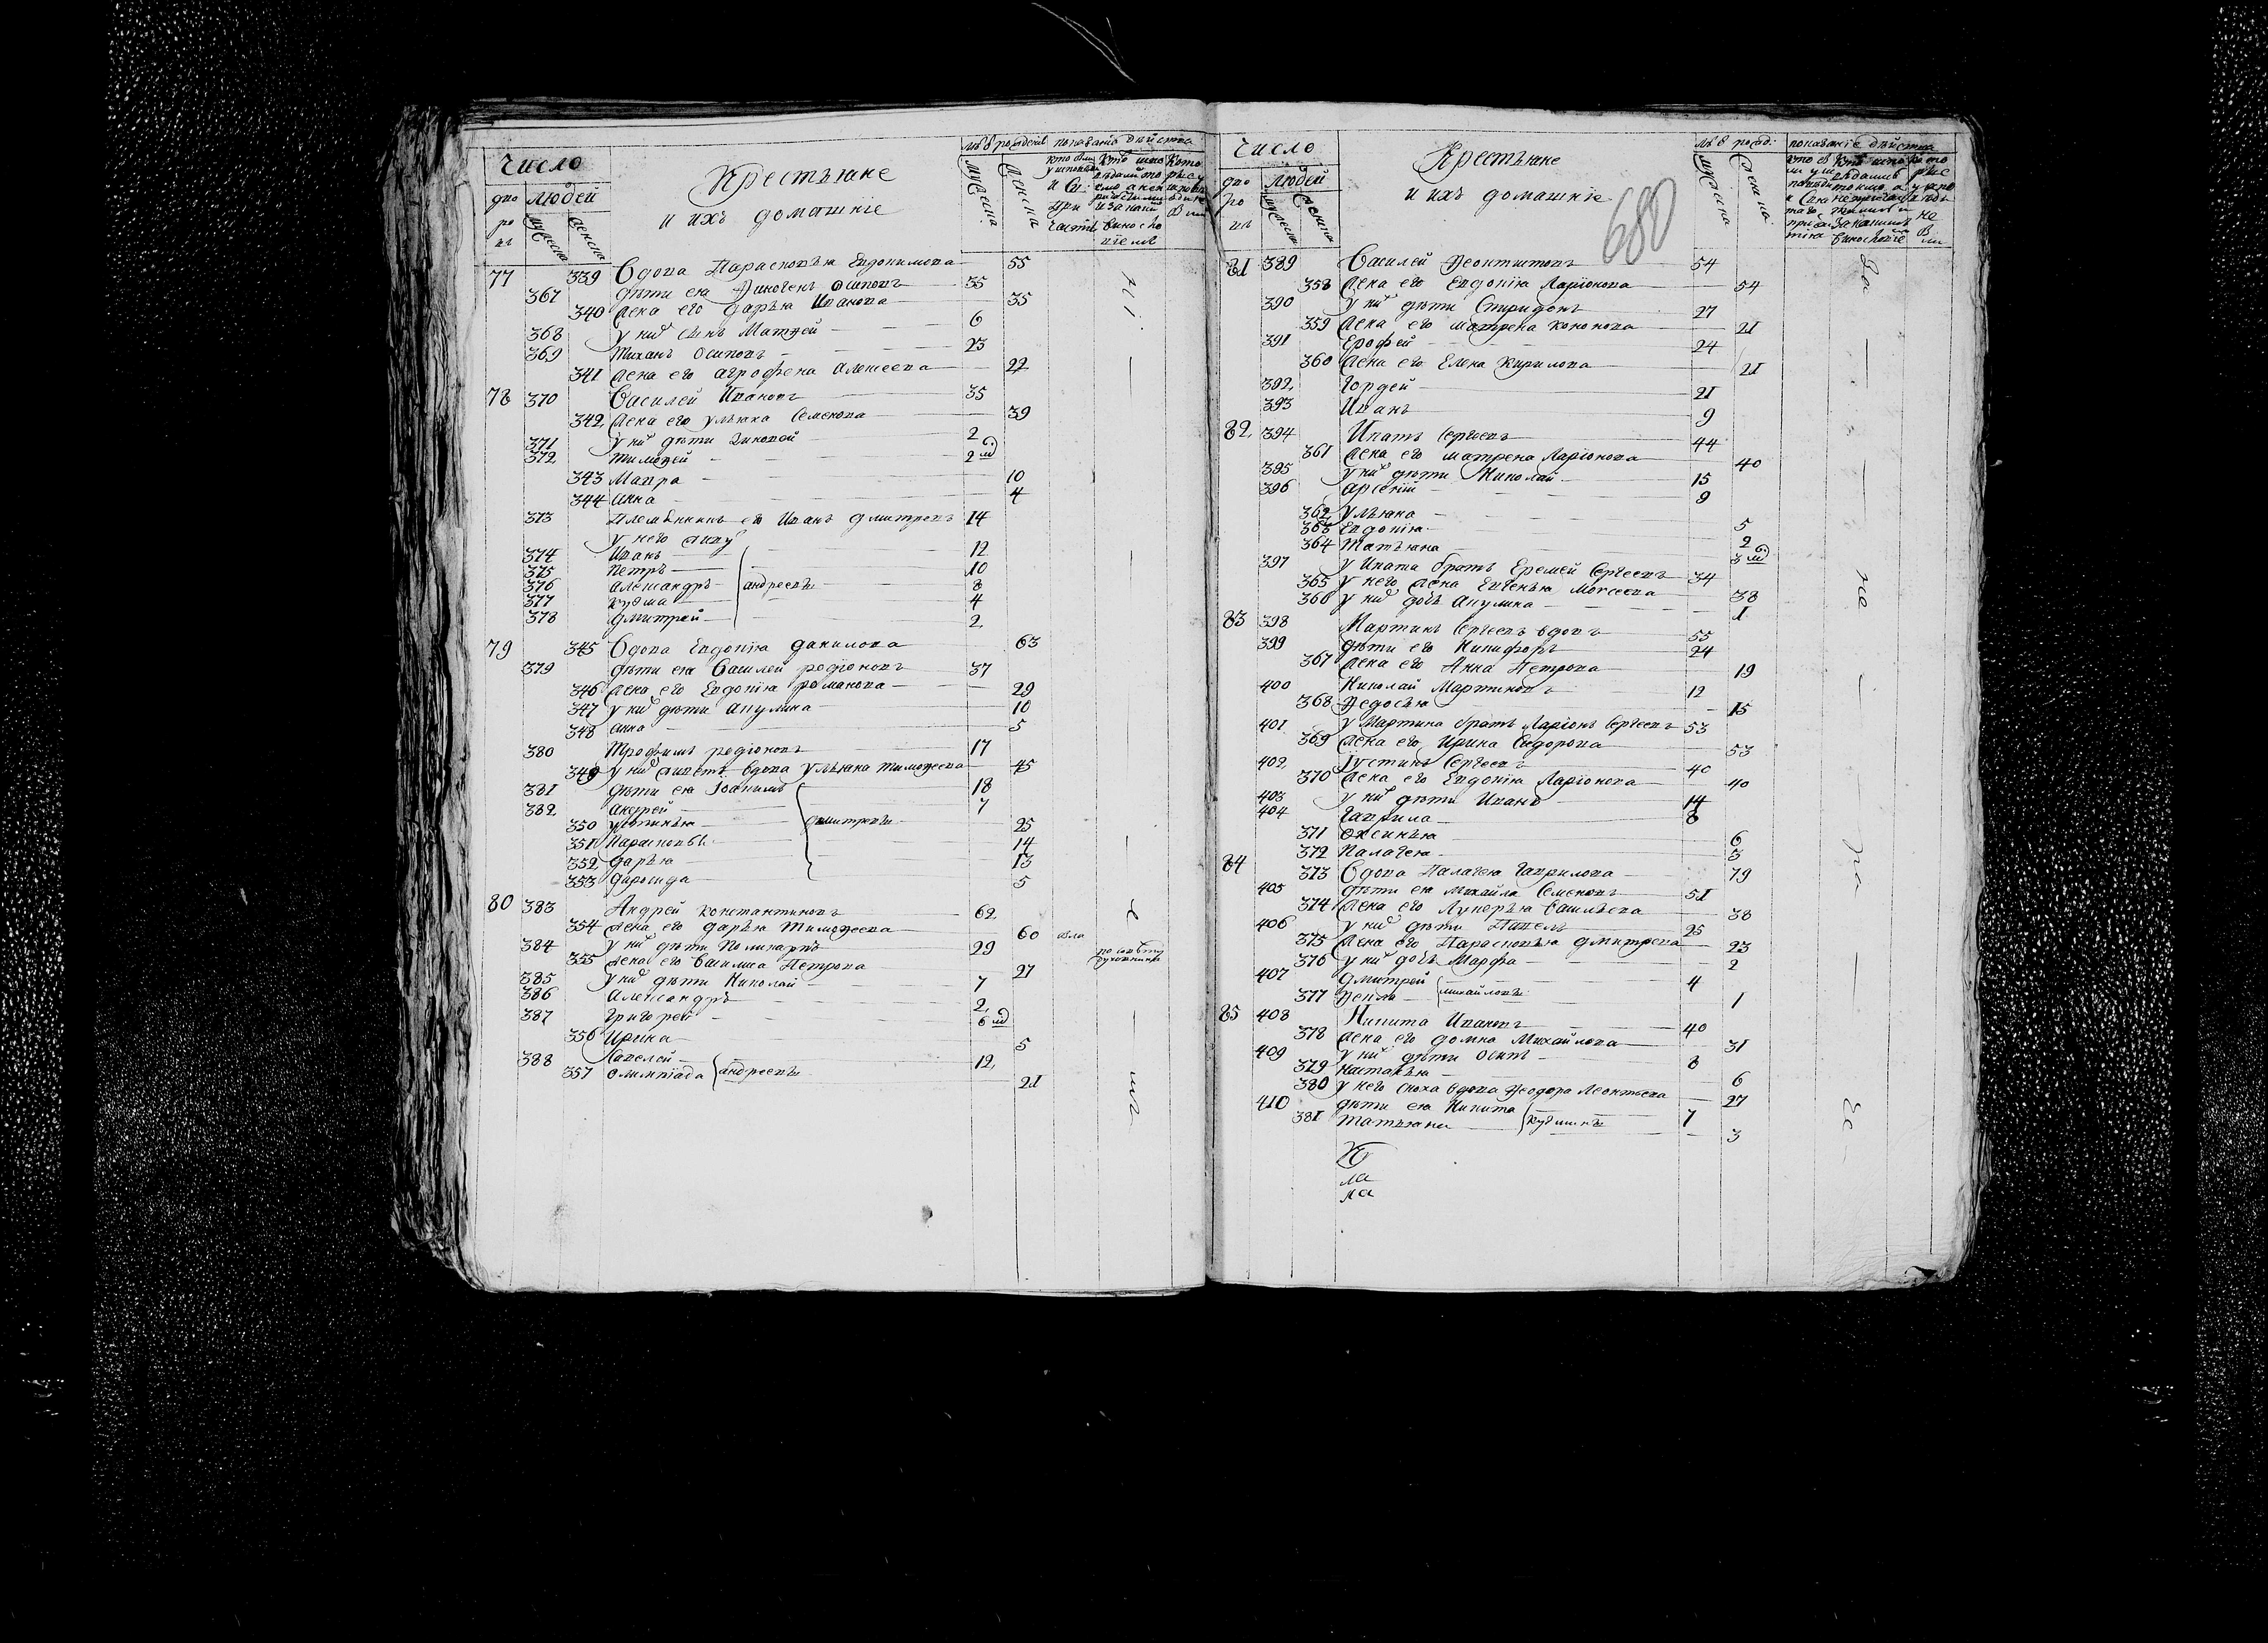 Число
дво ро въ
людей
мужеска
женска
Крестьяне
и ихъ домашніе
лѣ рожденія
мужеска
женска
показаніе дѣйства
77 339 Вдова Парасковья Евдокимова 55
367 дѣти ея Финогенъ Осиповъ 35
340 жена его Дарья Иванова 35
368 у них сынъ Матѳей 6
369 Тиханъ Осиповъ 23
341 жена его агрофена алексеева 22
78 370 Василей Ивановъ 35
342 жена его ульяна Семенова 39
371 у них дѣти Зиновей 2
372 тимоѳей 2 м
343 Мавра 10
344 анна 4
373 Племѣнникъ его Иванъ дмитревъ 14
у него живут
374 Иванъ 12
375 петръ 10
376 александръ андреевы 8
377 кузма 4
378 дмитрей 2
79 345 Вдова Евдокия данилова 63
379 дѣти ея Василей родіоновъ 37
346 жена его Евдокия романова 29
347 у них дѣти акулина 10
348 анна 5
380 Трофимъ родіоновъ 17
349 у них живетъ вдова ульяна тимоѳеева 45
381 дѣти ея Іоакимъ 18
382 андрей 7
350 устинья дмитревы 25
351 Парасковья 14
352 дарья 13
353 5
80 383 Андрей константиновъ 62
354 жена его дарья Тимоѳеева 60
384 у них дѣти Поликарпъ 29
355 жена его Василиса Петрова 27
385 у них дѣти Николай 7
386 александръ 2
387 григорей 6 м
356 Ирина 5
388 Савелей 12
357 олимпіада андреевы 21
Число
дво ро въ
людей
мужеска
женска
Крестьяне
и ихъ домашніе
680
лѣ рожд:
мужеска
женска
показаніе дѣйства
81 389 Василей Леонтиевъ 54
358 жена его Евдокия Ларіонова 54
390 у них дѣти Спиридонъ 27
359 жена его матрена кононова 21
391 Ерофей 24
360 жена его Елена кирилова 21
392 Гордей 21
393 Иванъ 9
82 394 Ипатъ Сергеевъ 44
361 жена его матрена Ларіонова 40
395 у них дѣти Николай 15
396 арсеній 9
362 Ульяна 5
363 Евдокия 2
364 Татьяна 3 м
397 у Ипата братъ Еремей Сергеевъ 34
365 у него жена Евгенья Мосеева 38
366 у них дочь акулина 1
83 398 Мартинъ Сергеевъ вдовъ 55
399 дѣти его Никифоръ 24
367 жена его Анна Петрова 19
400 Николай Мартиновъ 12
368 Ѳедосья 15
401 у Мартина братъ Ларіонъ Сергеевъ 53
369 жена его Ирина Сидорова 53
402 Іустинъ Сергеевъ 40
370 жена его Евдокия Ларіонова 40
403 у них дѣти Иванъ 14
404 Гаврила 8
371 Оксинья 6
372 Палагея 3
84 373 Вдова Палагея Гаврилова 79
405 дѣти ея Михайла Семеновъ 51
374 жена его Лукерья Васильева 38
406 у них дѣти Павелъ 25
375 жена его Параскевья дмитрева 23
376 у них дочь Марфа 2
407 дмитрей 4
377 Ѳекла михайловы 1
85 408 Никита Ивановъ 40
378 жена его домна Михайлова 31
409 у них дѣти Осипъ 8
379 настасья 6
380 у него сноха вдова Ѳеодора Леонтьева 27
410 дѣти ея Никита 7
381 татьяна кузмины 3